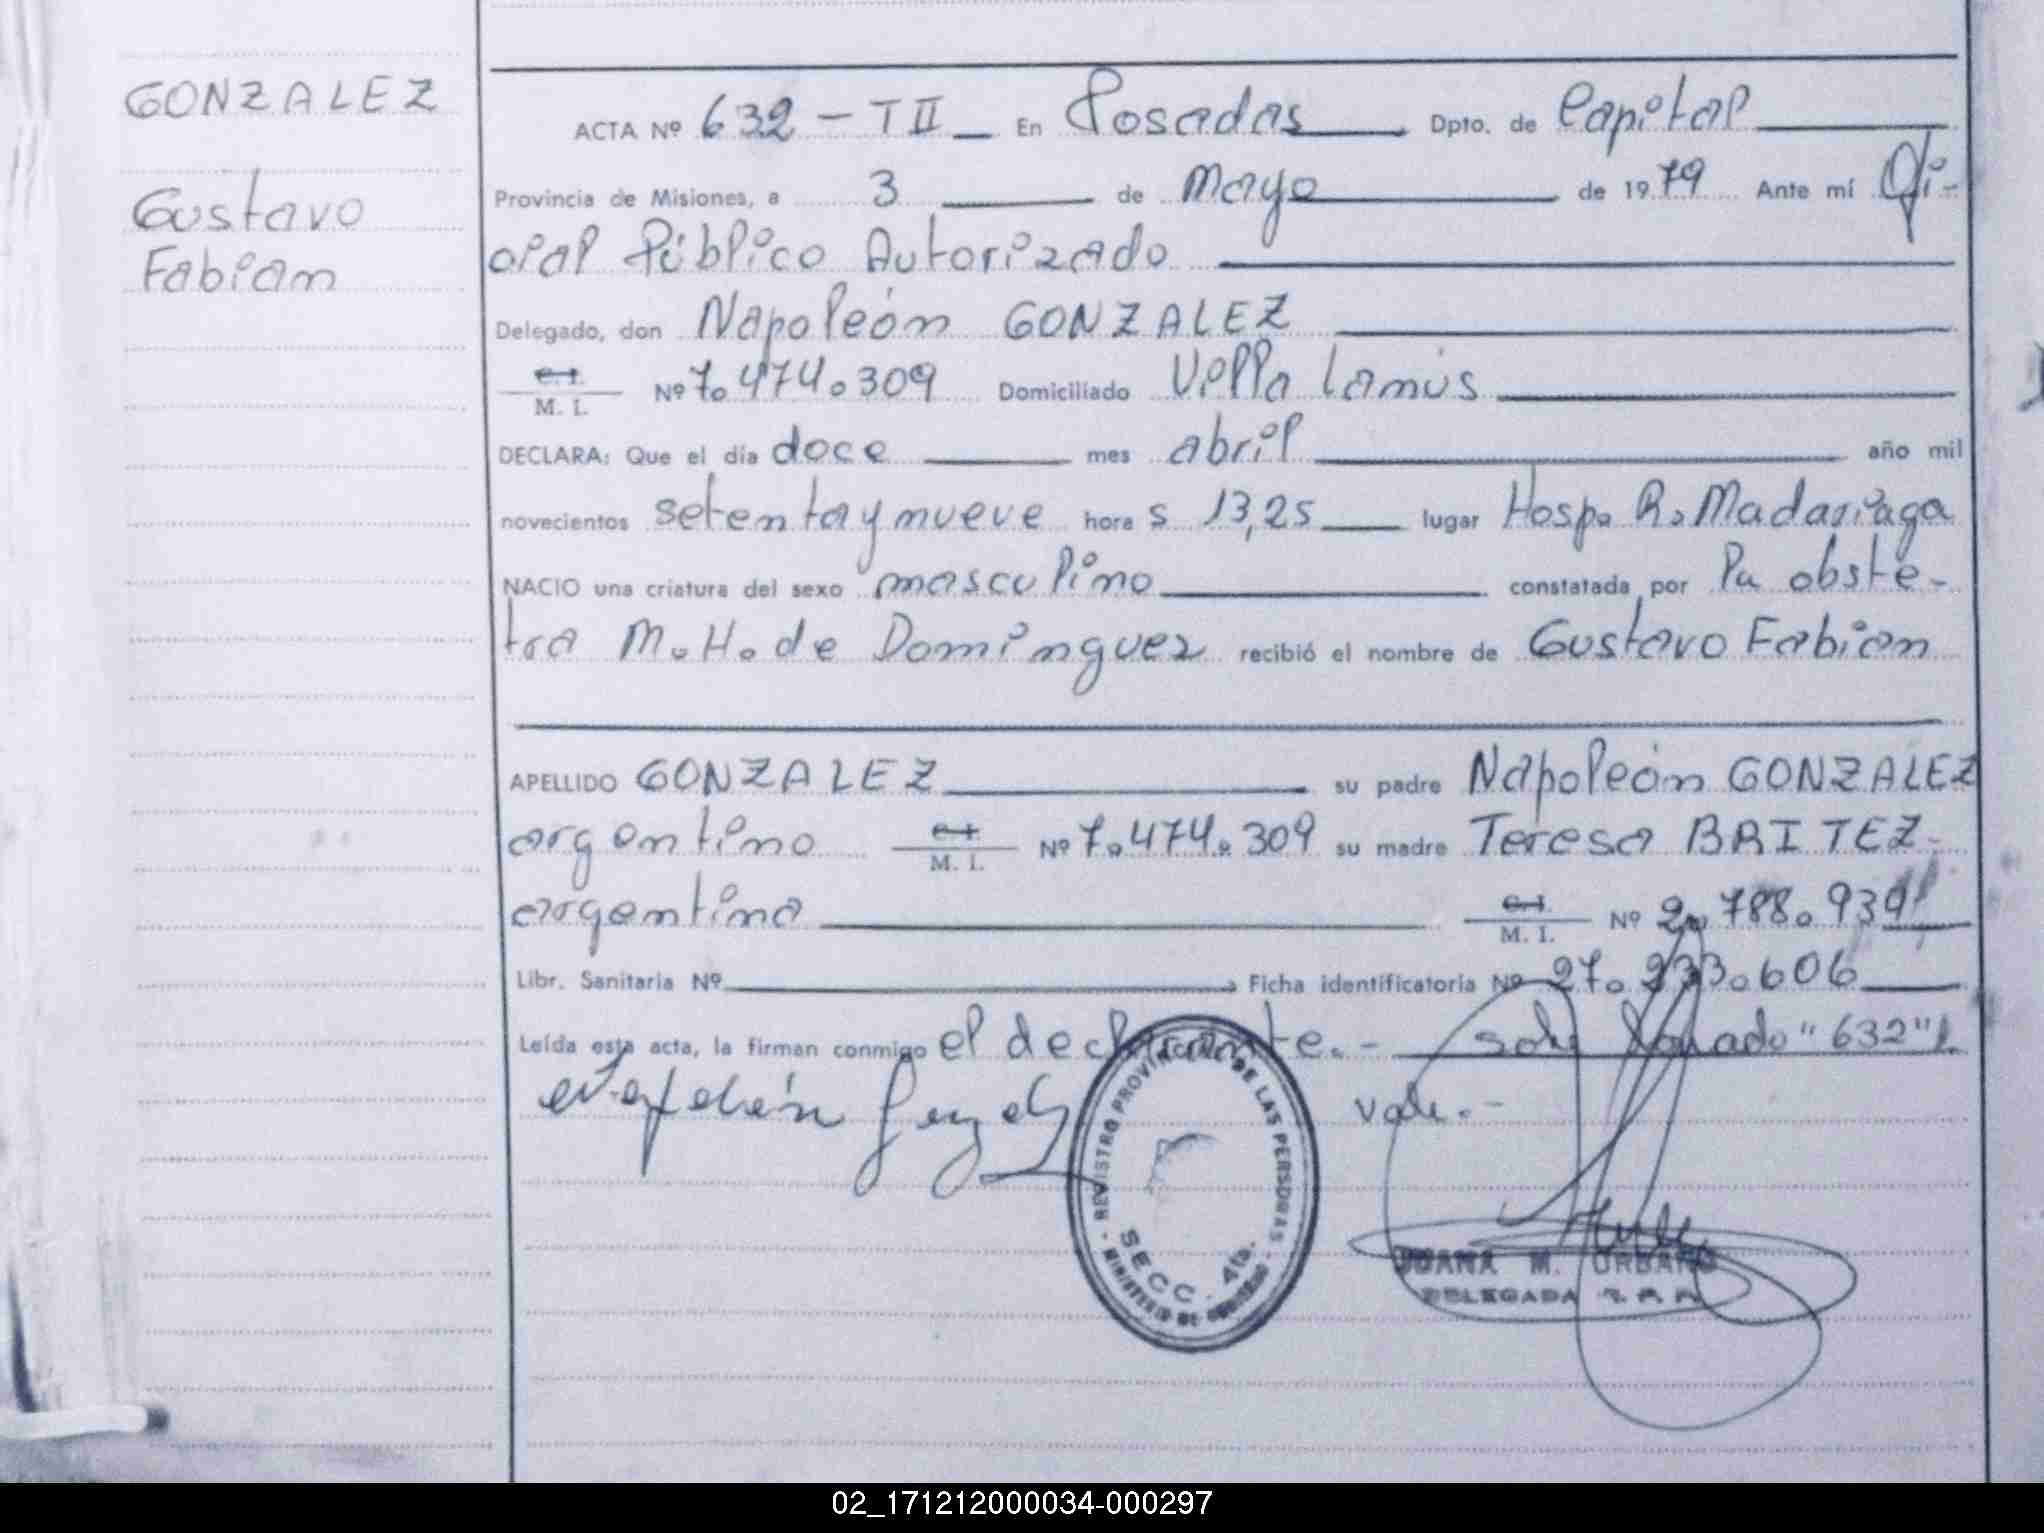 GONZALEZ
Gustavo
Fabian
ACTA Nº 632 - T II En Posadas Dpto. de Capital
Provincia de Misiones, a 3 de Mayo de 1979 Ante mí Ofi-
cial Público Autorizado
Delegado, don Napoleón GONZALEZ
C. I.
M. I. Nº 7.474.309 Domiciliado Villa Lanús
DECLARA: Que el día doce mes abril año mil
novecientos setenta y nueve hora s 13,25 lugar Hosp. R. Madariaga
NACIO una criatura del sexo masculino constatada por la obste-
tra M. H. de Dominguez recibió el nombre de Gustavo Fabian
APELLIDO GONZALEZ su padre Napoleón GONZALEZ
argentino C. I. M. I. Nº 7.474.309 su madre Teresa BRITEZ-
argentina C. I. M. I. Nº 2.788.939
Libr. Sanitaria Nº Ficha identificatoria Nº 27.233.606
Leída esta acta, la firman conmigo el declarante.- sobre borrado "632"
Napoleón Gonzalez vale.-
REGISTRO PROVINCIAL DE LAS PERSONAS
SECC. 4ta.
MINISTERIO DE GOBIERNO
JUANA M. URBANO
DELEGADA R.P.P.
02_171212000034-000297